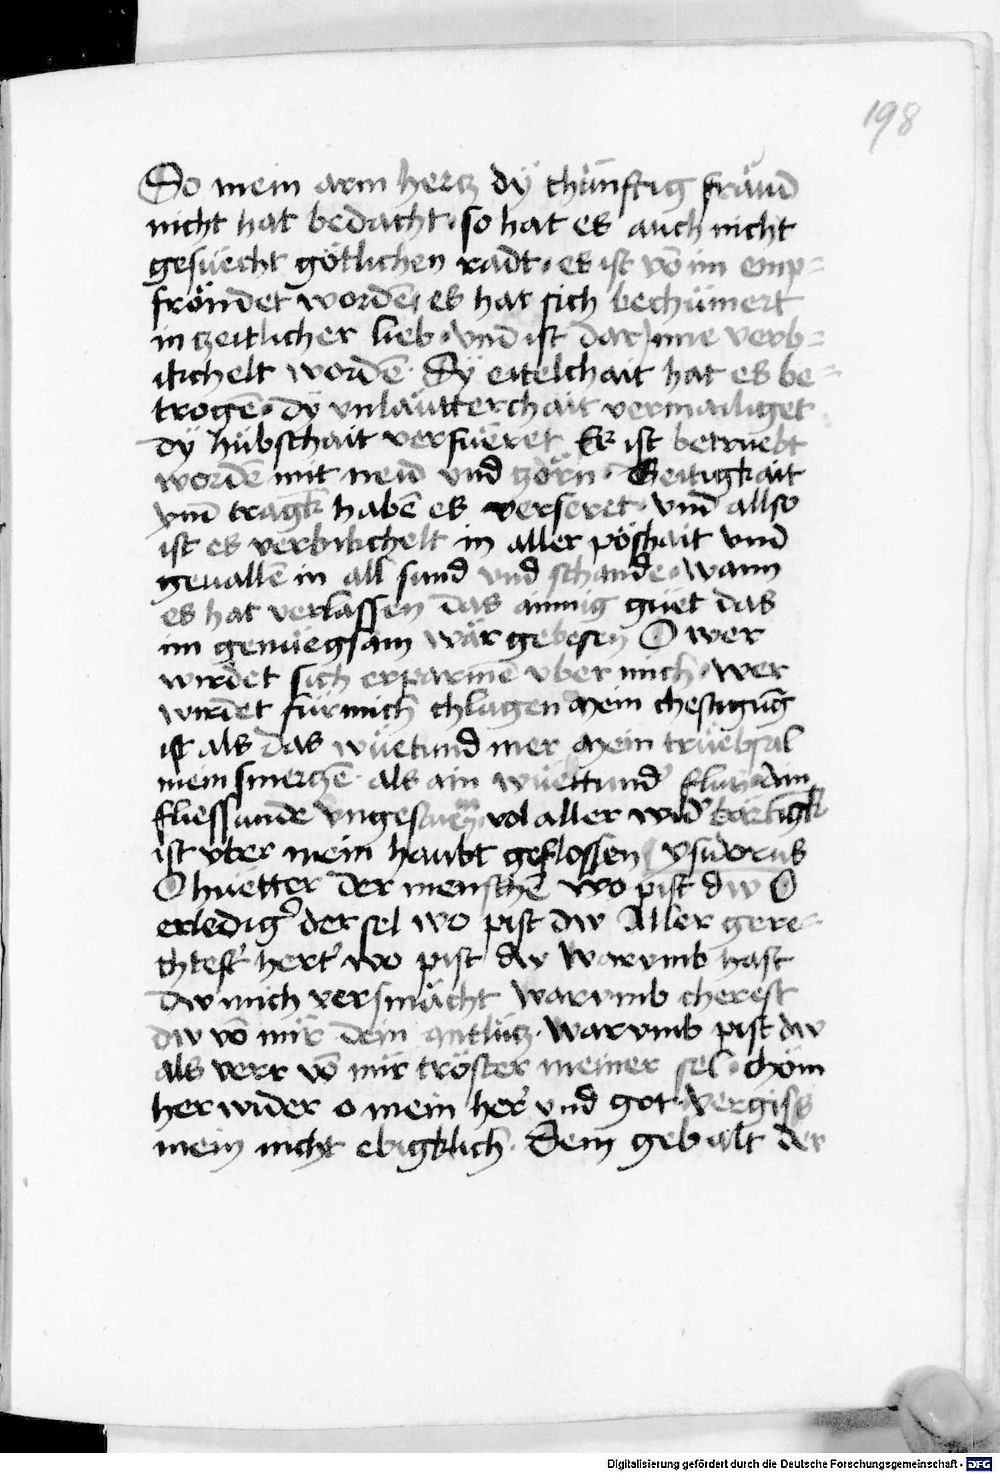 198
So mein arm hertz dÿ chünftig fräud
nicht hat bedacht · so hat es auch nicht
gesüecht götlichen radt · es ist vō im emp=
fröndet wordē, es hat sich bechümert
in zeitlicher lieb · vnd ist dar jnne verb=
ikchelt wordē · Dÿ eitelchait hat es be=
trogē · dÿ vnläutterchait vermailiget
dÿ hübschait verfüeret Er ist betruebt
wordē mit neid vnd zörn · Geitigkait
vnd tragk habē es verseret · vnd allso
ist es verbikchelt in aller pöshait vnd
geuallē in all sund vnd schande · wann
es hat verlassen das ainnig güet das
im genüegsam wär gebesen O wer
wirdet sich erparmē vber mich · wer
wirdet für mich chlagen Mein chestigūg
ist als das wüetund mer Mein trüebsal
mein smerczē · als ain wüettund' fluss Ain
fliessunde vngestuem vol aller wid'bärtigk
ist vber mein haubt geflossen ysidorus
O huetter der menschē wo pist dw O
erledig' der sel wo pist dw Aller gere=
chtest' hert' wo pist dw Warvmb hast
dw mich versmächt Warvmb cherest
dw vō mir dein antlütz · Warvmb pist dw
als verr vō mir tröster meiner sel · chöm
her wider o mein her' vnd got · vergiss
mein nicht ebigklich · Dem gebalt der
Digitalisierung gefördert durch die Deutsche Forschungsgemeinschaft - DFG